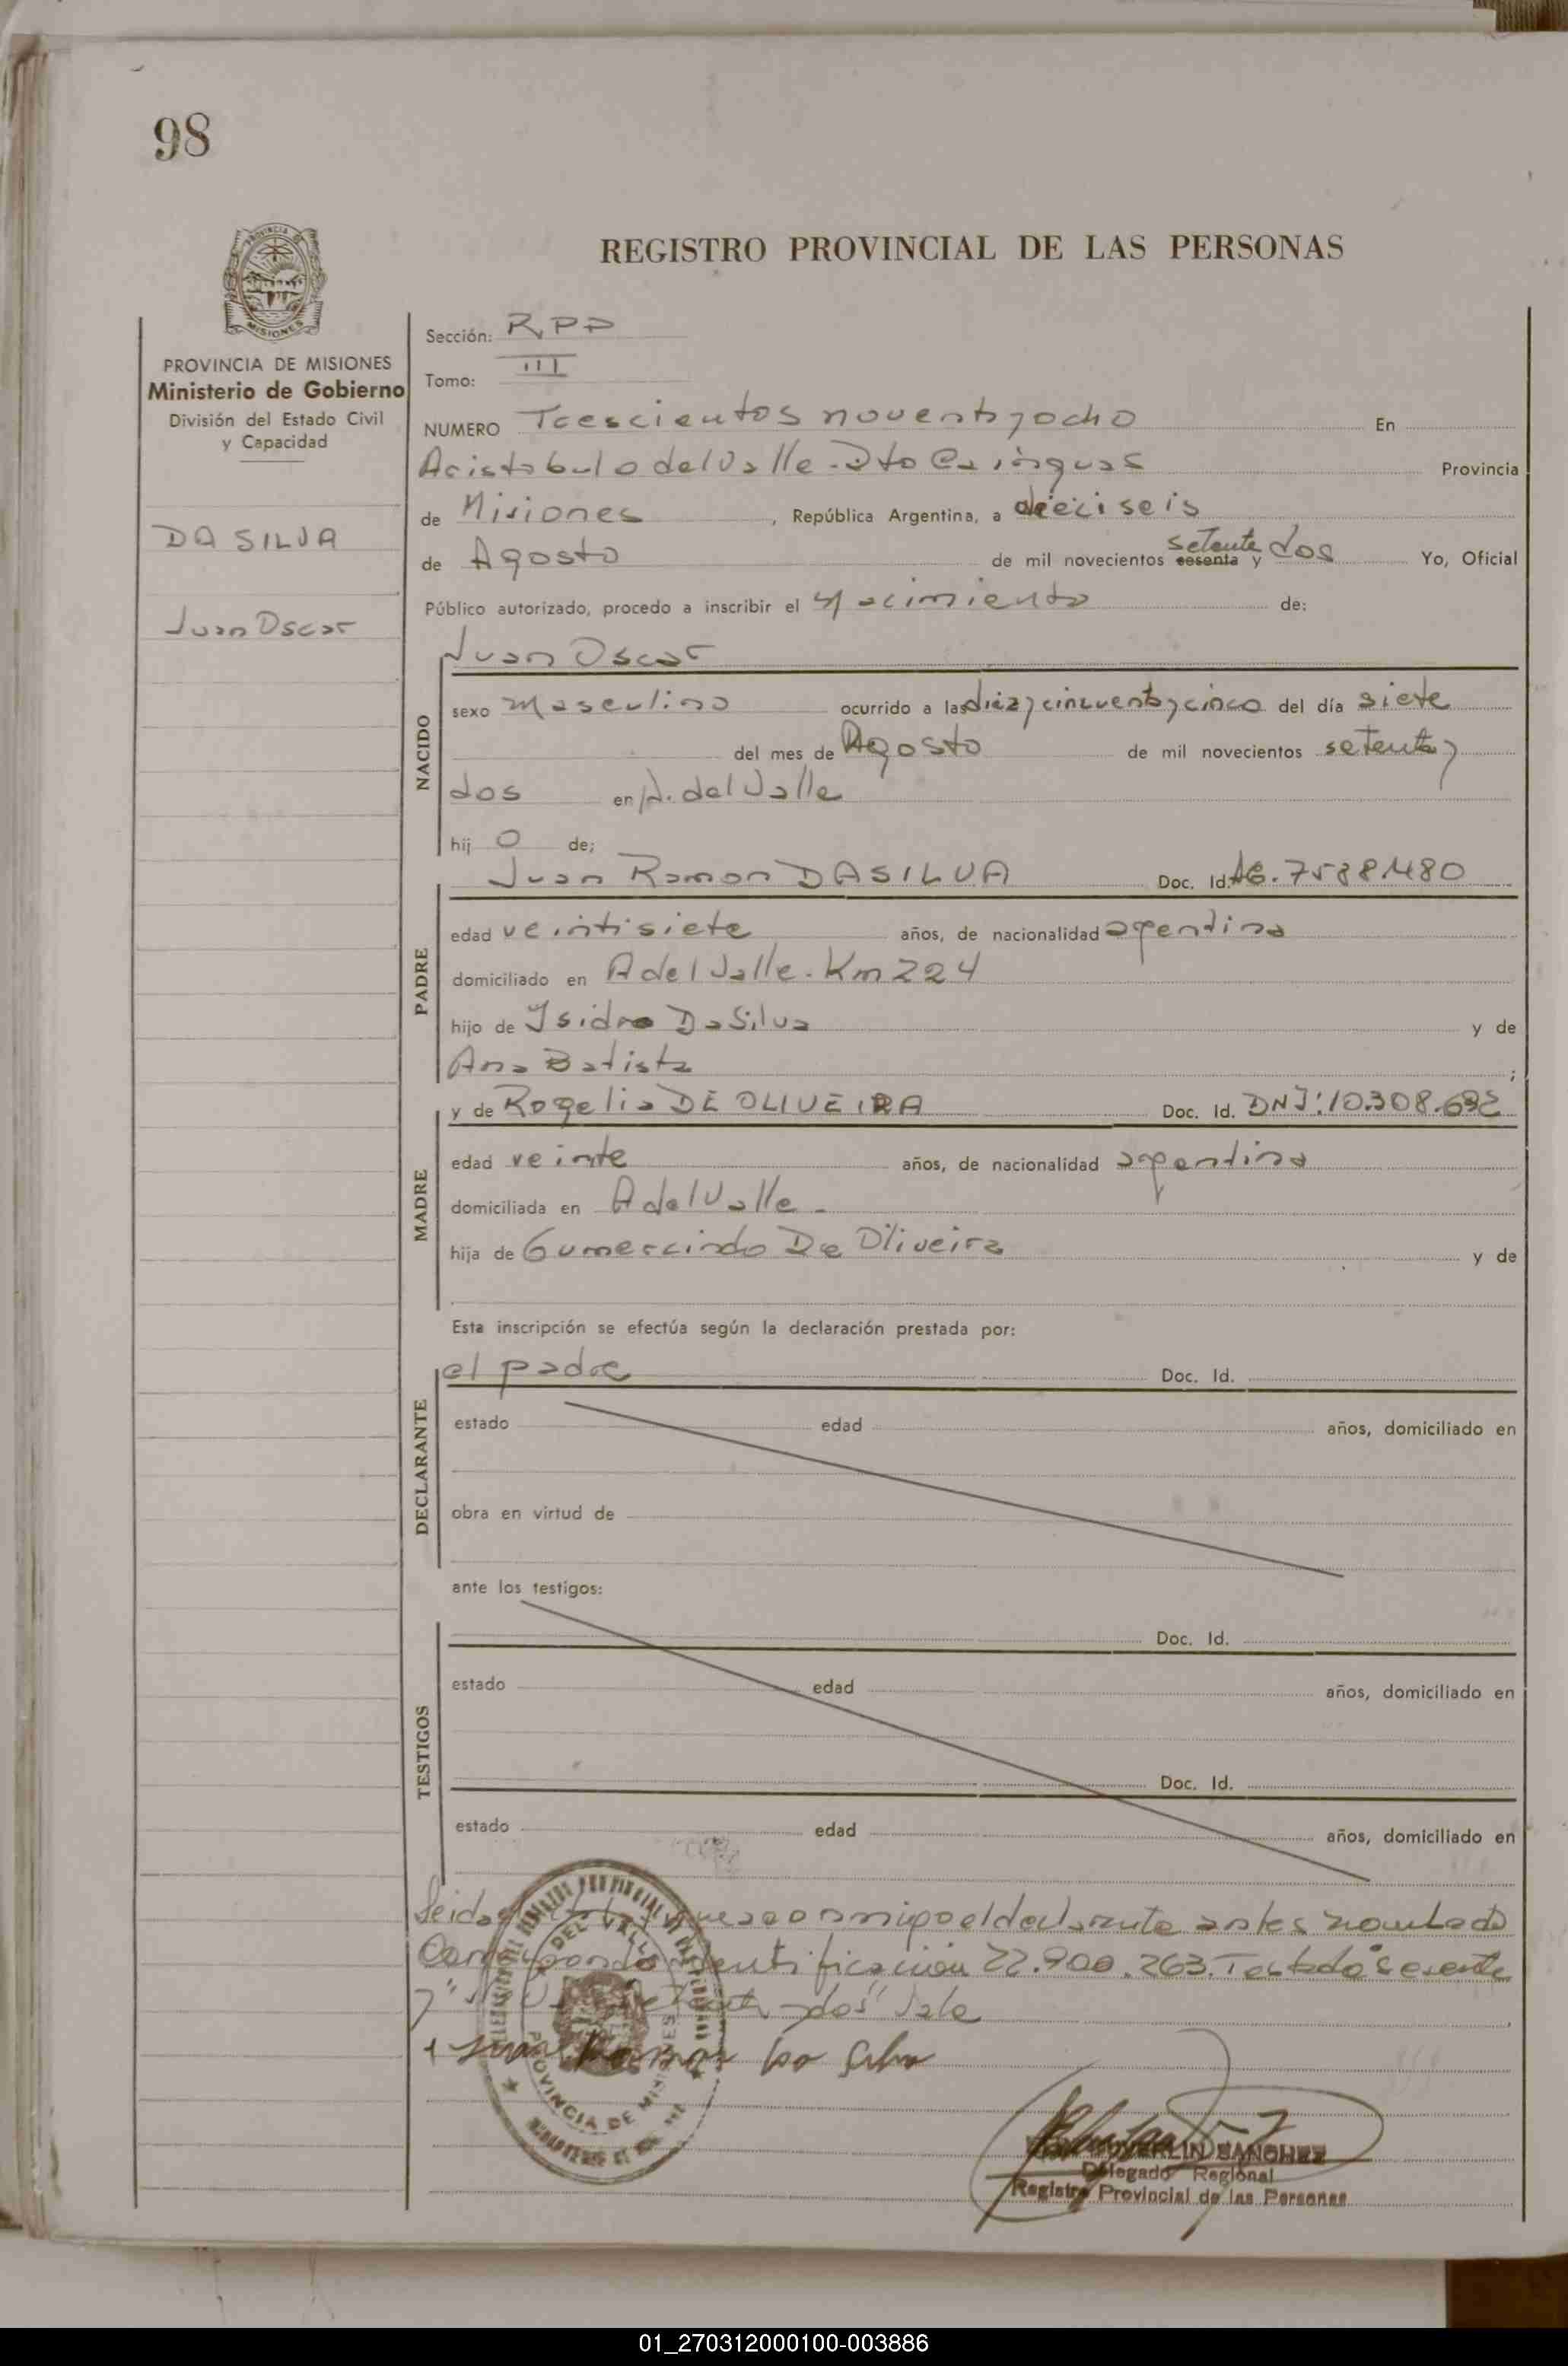 98
REGISTRO PROVINCIAL DE LAS PERSONAS
PROVINCIA DE MISIONES
Ministerio de Gobierno
División del Estado Civil
y Capacidad
DA SILVA
Juan Oscar
Sección: RPP
Tomo: III
NUMERO Trescientos noventa y ocho En
Aristobulo del Valle - Dto Cainguas Provincia
de Misiones, República Argentina, a dieciseis
de Agosto de mil novecientos sesenta y setenta dos Yo, Oficial
Público autorizado, procedo a inscribir el Nacimiento de:
Juan Oscar
NACIDO
sexo masculino ocurrido a las diez y cincuenta y cinco del día siete
del mes de Agosto de mil novecientos setenta y
dos en A. del Valle
hij o de;
PADRE
Juan Ramon DA SILVA Doc. Id. 7588.480
edad veintisiete años, de nacionalidad argentina
domiciliado en A del Valle. Km 224
hijo de Isidro Da Silva y de
Ana Batista ;
MADRE
y de Rogelia DE OLIVEIRA Doc. Id. DNI: 10.308.692
edad veinte años, de nacionalidad argentina
domiciliada en A del Valle -
hija de Gumercindo De Oliveira y de
Esta inscripción se efectúa según la declaración prestada por:
DECLARANTE
el padre Doc. Id.
estado edad años, domiciliado en
obra en virtud de
ante los testigos:
TESTIGOS
Doc. Id.
estado edad años, domiciliado en
Doc. Id.
estado edad años, domiciliado en
Leida el acta conmigo el declarante antes nombrado
Corresponde identificación 22.900.263. Testado "sesenta
y" setenta dos" Vale
+ Juan Ramon Da Silva
DEL VALLE
PROVINCIA DE MISIONES
SANCHEZ
Delegado Regional
Registro Provincial de las Personas
01_270312000100-003886